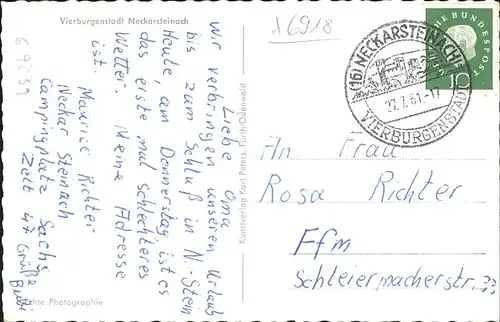 Vierburgenstadt Neckarsteinach
Liebe Oma
Wir verbringen unseren Urlaub
bis zum Schluß in N-Stein.
Heute, am Donnerstag ist es
das erste mal schlechteres
Wetter. Meine Adresse
ist.
Maurice Richter
Neckar Steinach
Campingplatz Sachs
Zelt 47 Grüße
chte Photographie
Kunstverlag Karl Peters, Fürth/Odenwald
6918
(16) NECKARSTEINACH
27.7.61-17
VIERBURGENSTADT
HE BUNDESPOST
10
An Frau
Rosa Richter
Ffm
Schleiermacherstr. ??